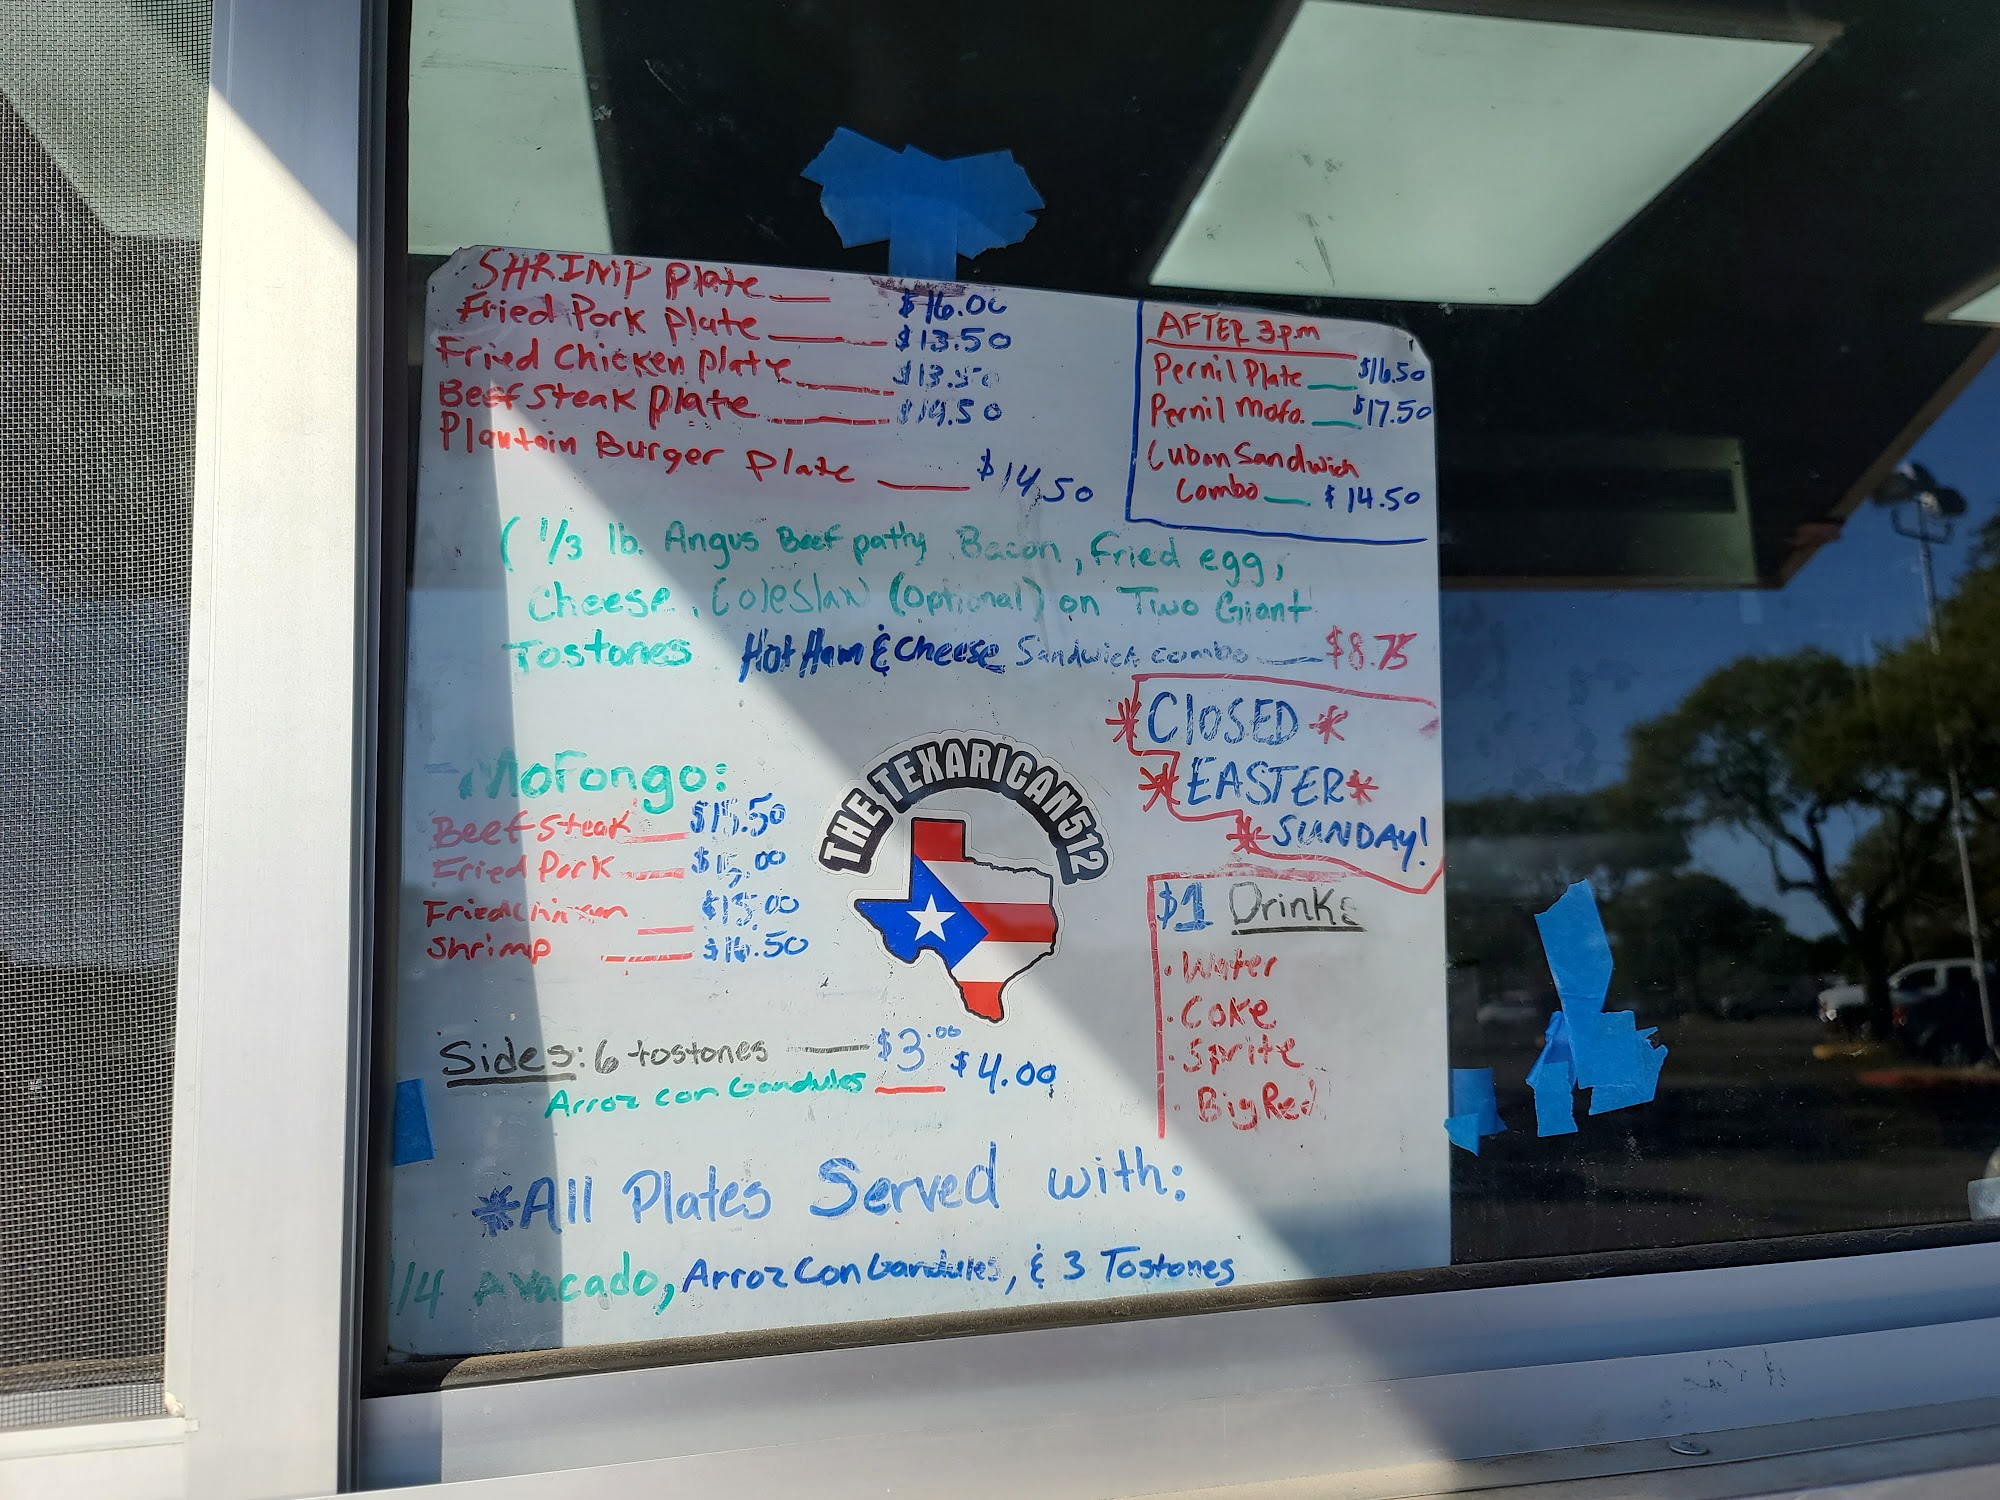 SHRIMP Plate $16.00
Fried Pork Plate $13.50
Fried Chicken Plate $13.50
Beef Steak Plate $14.50
Plantain Burger Plate $14.50
( 1/3 lb. Angus Beef patty Bacon, Fried egg,
Cheese, Coleslaw (Optional) on Two Giant
Tostones
Hot Ham & Cheese Sandwich combo $8.75
AFTER 3p.m
Pernil Plate $16.50
Pernil Mofo. $17.50
Cuban Sandwich
Combo $14.50
*CLOSED*
*EASTER*
*SUNDAY!
Mofongo:
Beef Steak $15.50
Fried Pork $15.00
Fried Chicken $15.00
Shrimp $16.50
THE TEXARICAN512
$1 Drinks
· Water
· Coke
· Sprite
· Big Red
Sides: 6 tostones $3.00
Arroz con Gandules $4.00
*All Plates Served with:
1/4 Avacado, Arroz Con Gandules, & 3 Tostones